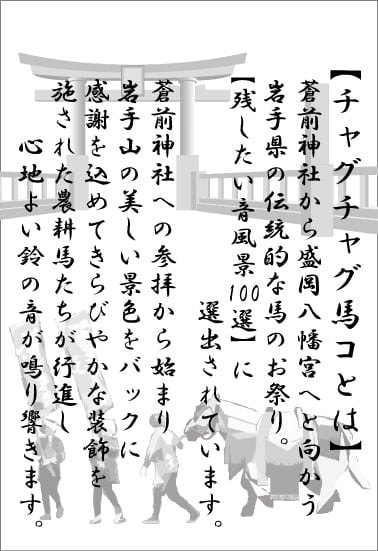 【チャグチャグ馬コとは】
蒼前神社から盛岡八幡宮へと向かう
岩手県の伝統的な馬のお祭り。
【残したい音風景100選】に
選出されています。
蒼前神社への参拝から始まり
岩手山の美しい景色をバックに
感謝を込めてきらびやかな装飾を
施された農耕馬たちが行進し
心地よい鈴の音が鳴り響きます。